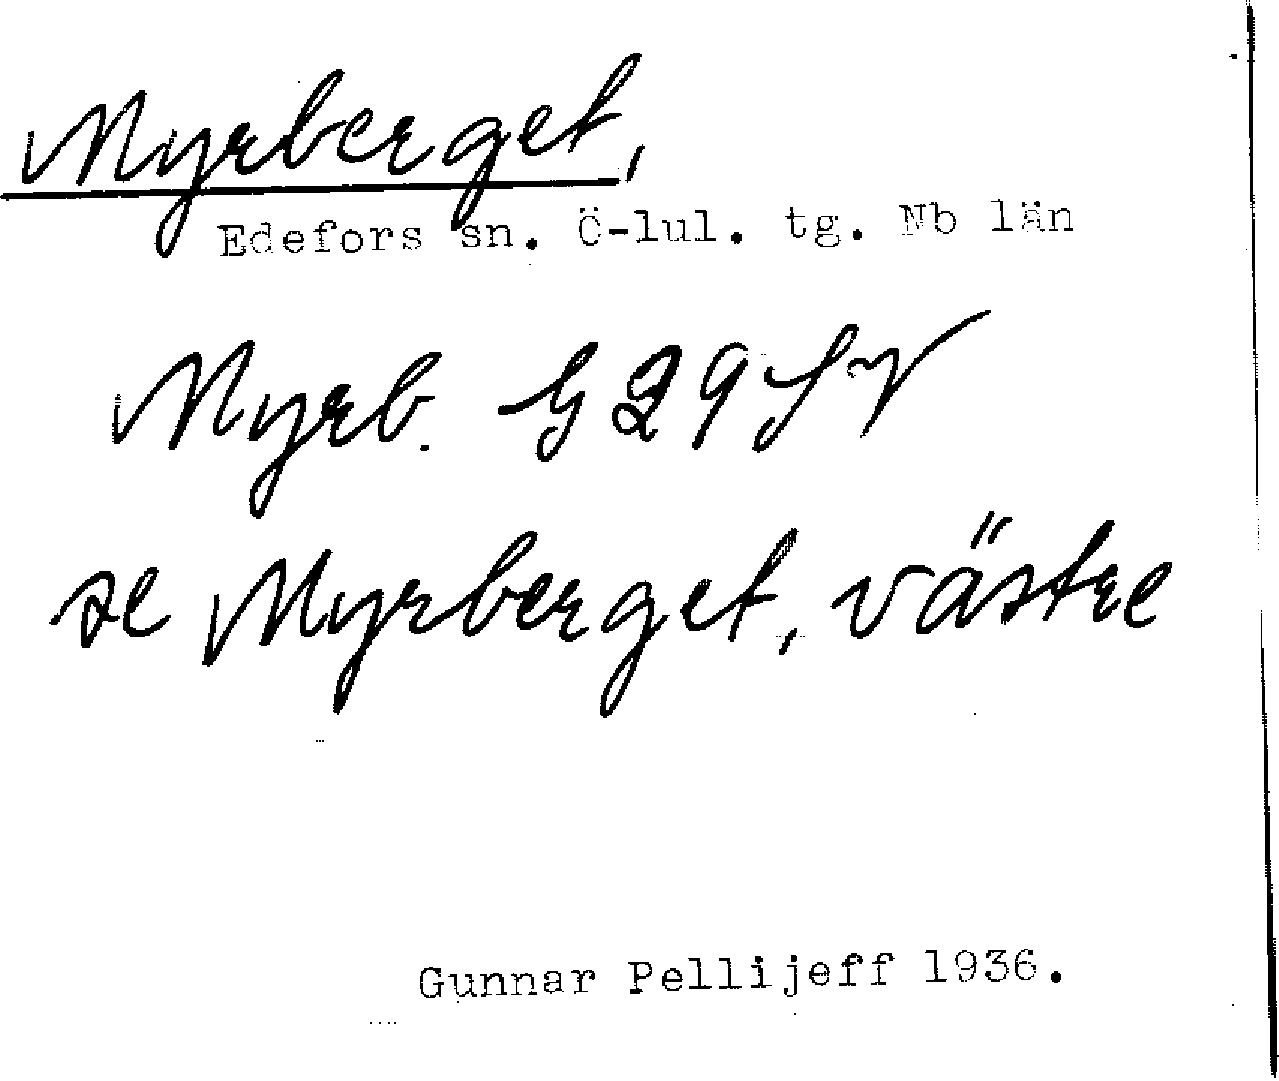 Myrberget,
Edefors sn. Ö-lul. tg. Nb län
Myrb. G 29 SV
se Myrberget, västre
Gunnar Pellijeff 1936.